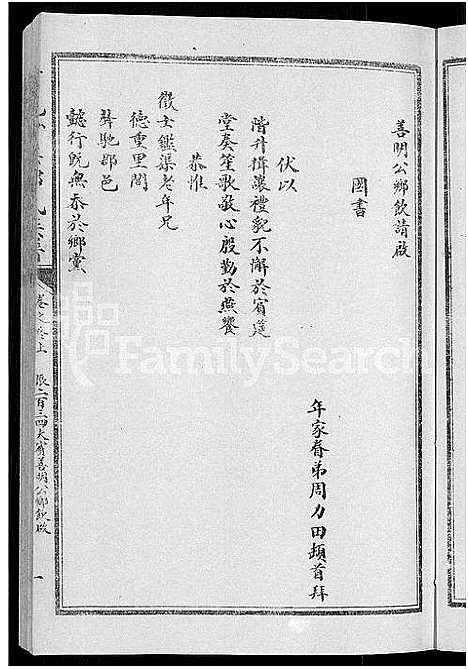 善明公鄉飲請啟
圖書
年家眷弟周力田頓首拜
伏以
階升揖讓禮貌不懈於賓筵
堂奏笙歌敬心殷勤於燕饗
恭惟
徵士鑑渠老年兄
德重里閭
聲馳郡邑
懿行既無忝於鄉黨
卷之冬上 二百三四大賓善明公鄉飲啟 一
FamilySearch